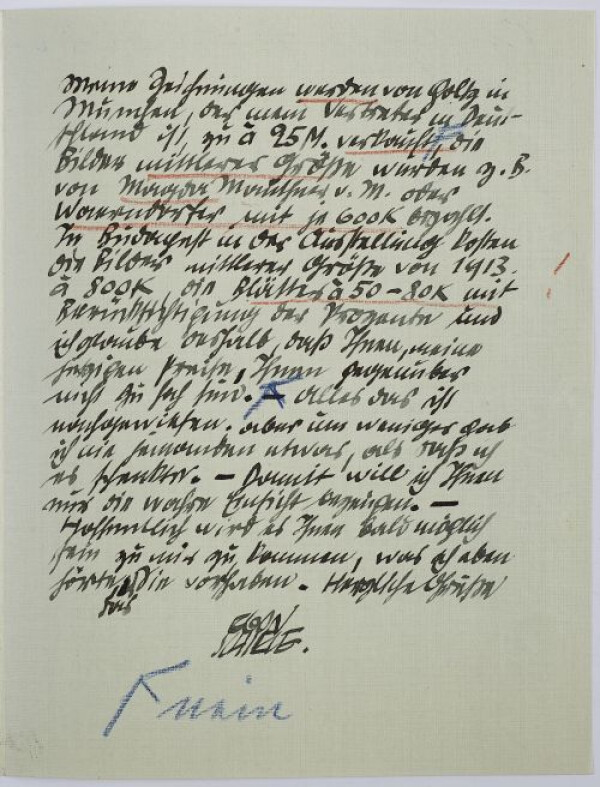 Meine Zeichnungen werden von Goltz in
München, der mein Vertreter in Deut-
schland ist, zu à 25 M. verkauft, die
Bilder mittlerer Größe wurden z. B.
von Magda Mautner v. M. oder
Waerndorfer mit je 600 K bezahlt.
In Budapest in der Ausstellung kosten
die Bilder mittlerer Größe von 1913.
à 800K, die Blätter à 50–80K mit
Berücksichtigung der Prozente und
ich glaube deshalb, daß Ihnen, meine
jetzigen Preise, Ihnen gegenüber
nicht zu hoch sind. – Alles das ist
nachgewiesen. aber um weniger gab
ich nie jemanden etwas, als daß ich
es schenkte. – Damit will ich Ihnen
nur die wahre Einsicht bezeigen. –
Hoffentlich wird es Ihnen bald möglich
sein zu mir zu kommen, was ich eben
hörte, Sie vorhaben. Herzliche Grüße
das
EGON
SCHIELE.
nein